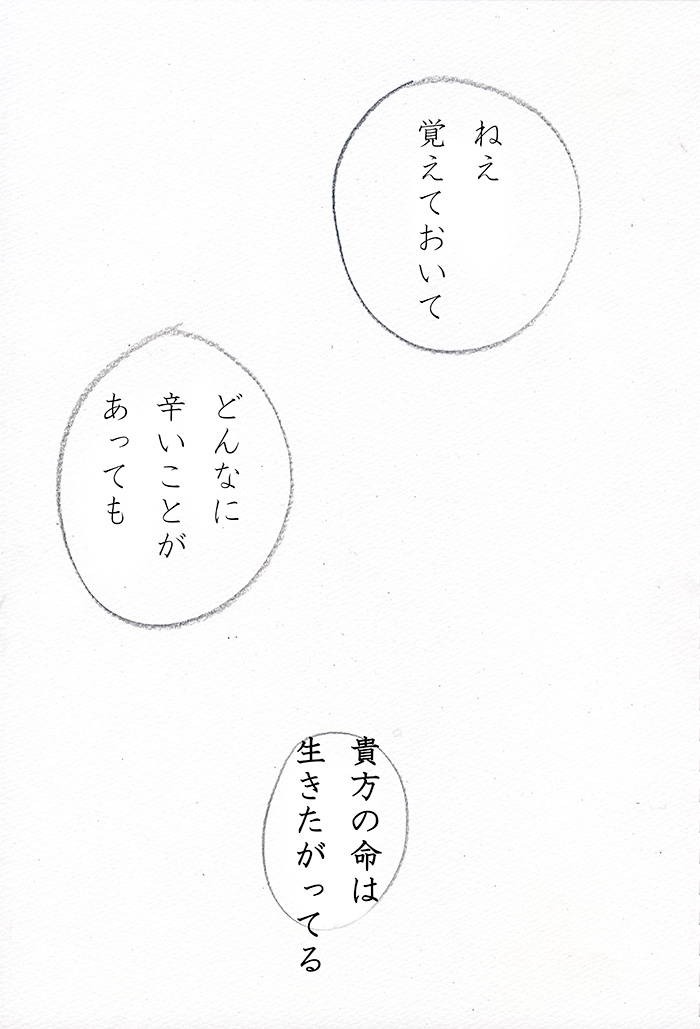 ねえ
覚えておいて
どんなに
辛いことが
あっても
貴方の命は
生きたがってる